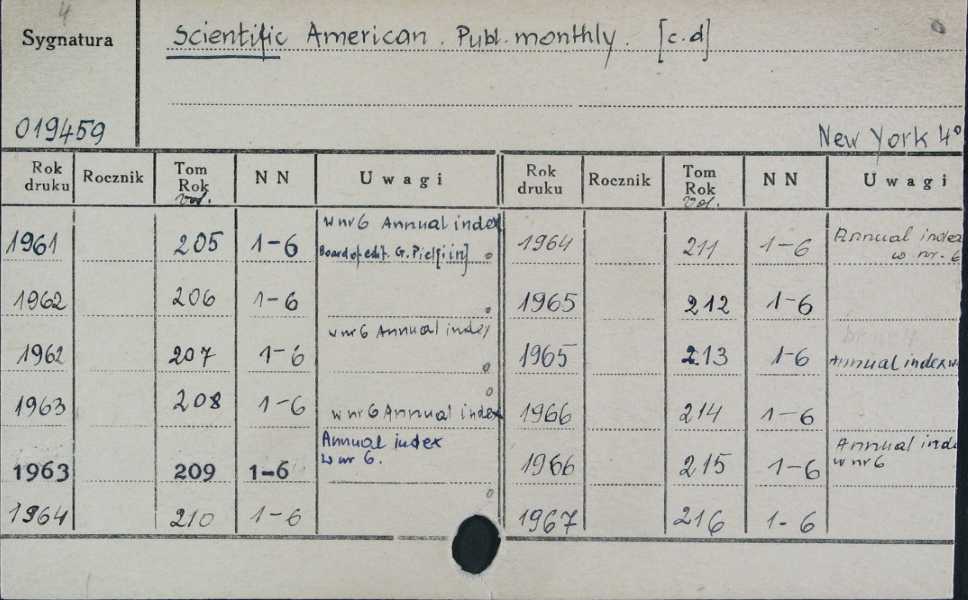 4
Sygnatura
Scientific American. Publ. monthly. [c.d]
019459
New York 4°
Rok druku Rocznik Tom Rok vol. NN Uwagi Rok druku Rocznik Tom Rok Vol. NN Uwagi
1961 205 1-6 w nr 6 Annual index Board of edit. G. Piel [i in] 1964 211 1-6 Annual index w nr. 6
1962 206 1-6 1965 212 1-6
1962 207 1-6 w nr 6 Annual index 1965 213 1-6 Annual index w
1963 208 1-6 w nr 6 Annual index 1966 214 1-6
1963 209 1-6 Annual index w nr 6. 1966 215 1-6 Annual inde w nr 6
1964 210 1-6 1967 216 1-6